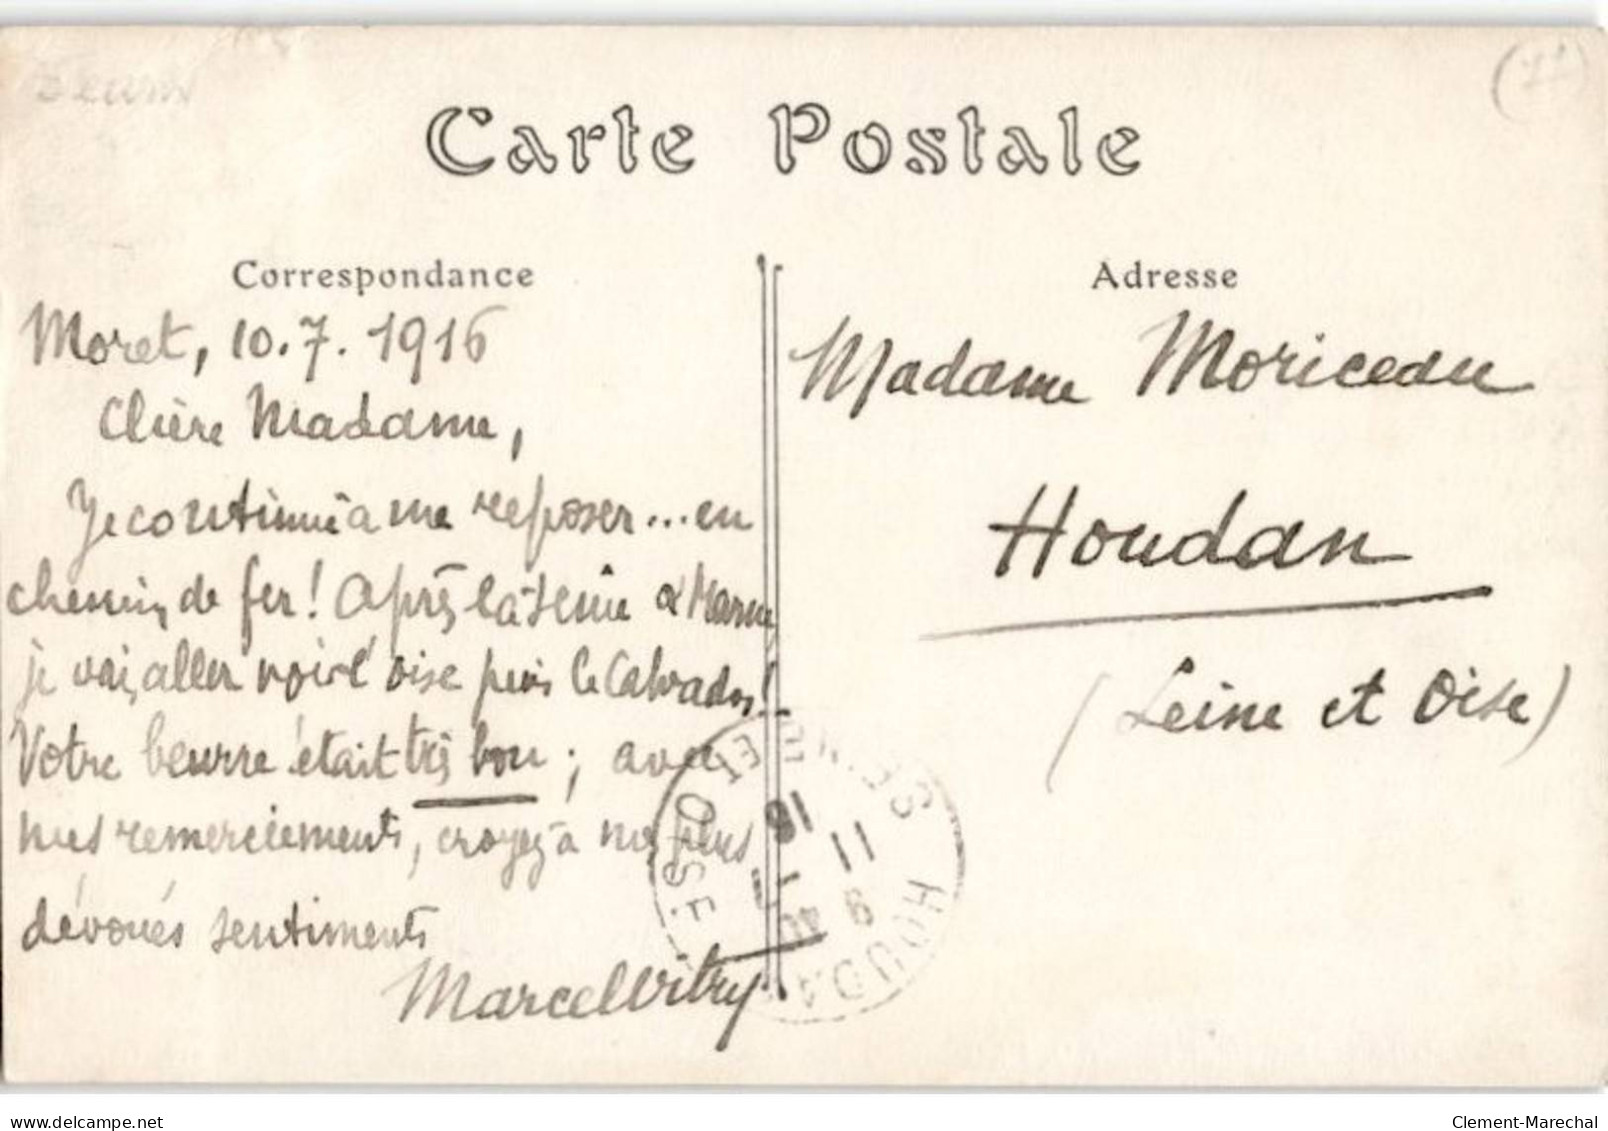 (77)
Carte Postale
Correspondance
Moret, 10.7.1916
Chère Madame,
Je continue à me reposer... en
chemin de fer! Après la Seine & Marne
je vais aller voir l'Oise puis le Calvados!
Votre beurre était très bon; avec
mes remerciements, croyez à mes plus
dévoués sentiments
Marcel Vitry
Adresse
Madame Moriceau
Houdan
(Seine et Oise)
HOUDAN
SEINE ET OISE
11
16
delcampe.net
Clement-Marechal